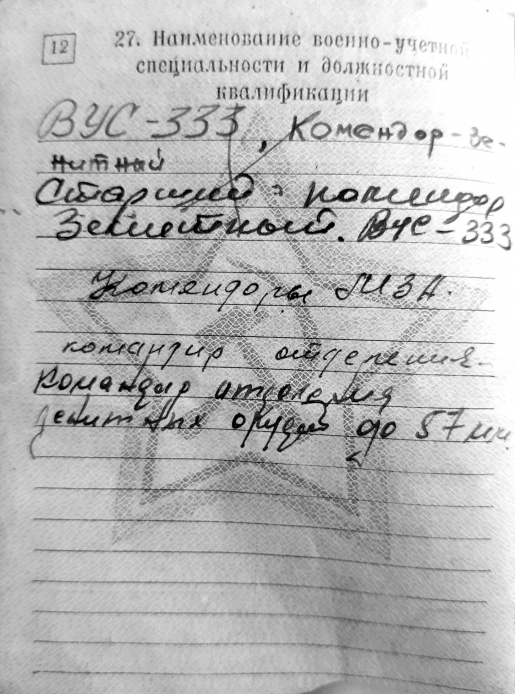 12
27. Наименование военно-учетной
специальности и должностной
квалификации
ВУС-333, Комендор-зе-
нитный
Старший комендор
Зенитный. ВУС-333
Комендоры МЗА.
командир отделения.
Командир отделения
зенитных орудий до 57 мм.